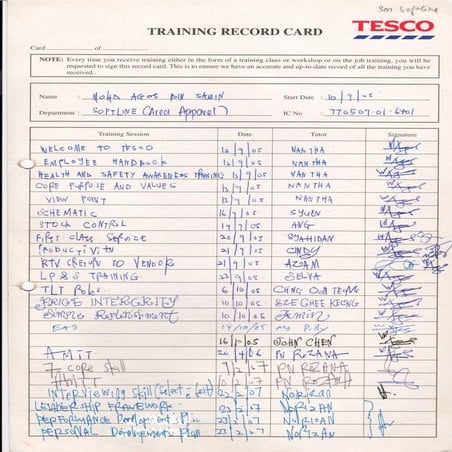 SM Softline
TRAINING RECORD CARD
TESCO
Card of
NOTE: Every time you receive training either in the form of a training class or workshop or on the job training, you will be
requested to sign this record card. This is to ensure we have an accurate and up-to-date record of all the training you have
received.
Name : MOHD AGOS BIN SAMIN Start Date : 10/9/05
Department : SOFTLINE (Area Apparel) IC No : 770507-01-6701
Training Session Date Tutor Signature
WELCOME TO TESCO 12/9/05 NANTHA
EMPLOYEE HANDBOOK 12/9/05 NANTHA
HEALTH AND SAFETY AWARENESS TRAINING 13/9/05 NANTHA
CORE PURPOSE AND VALUES 13/9/05 NANTHA
VIEW POINT 13/9/05 NANTHA
SCHEMATIC 16/9/05 SYUEN
STOCK CONTROL 19/9/05 ANG
FIRST CLASS SERVICE 20/9/05 SYAHIDAN
PRODUCTIVITY 21/9/05 CINDY
RTV (RETURN TO VENDOR) 21/9/05 AZOAM
LP & S TRAINING 23/9/05 SELYA
TLT Roles 6/10/05 CHNG
PRICE INTERGRITY 10/10/05 SZE GHEE KEONG
Simple Replenishment 10/10/05 Jemin
EAS 14/10/05 Ms
16/ /05 JOHN CHEN
AMIT 20/4/06 PN ROZANA
7 core skill 9/2/07 PN ROZANA
AMIT /2/07 PN ROZANA
INTERVIEWING Skill (Select - Fast) 22/2/07 NORIZAN
LEADERSHIP FRAMEWORK 23/2/07 NORIZAN
PERFORMANCE Development Plan 23/2/07 NORIZAN
PERSONAL Development Plan 23/2/07 NORIZAN